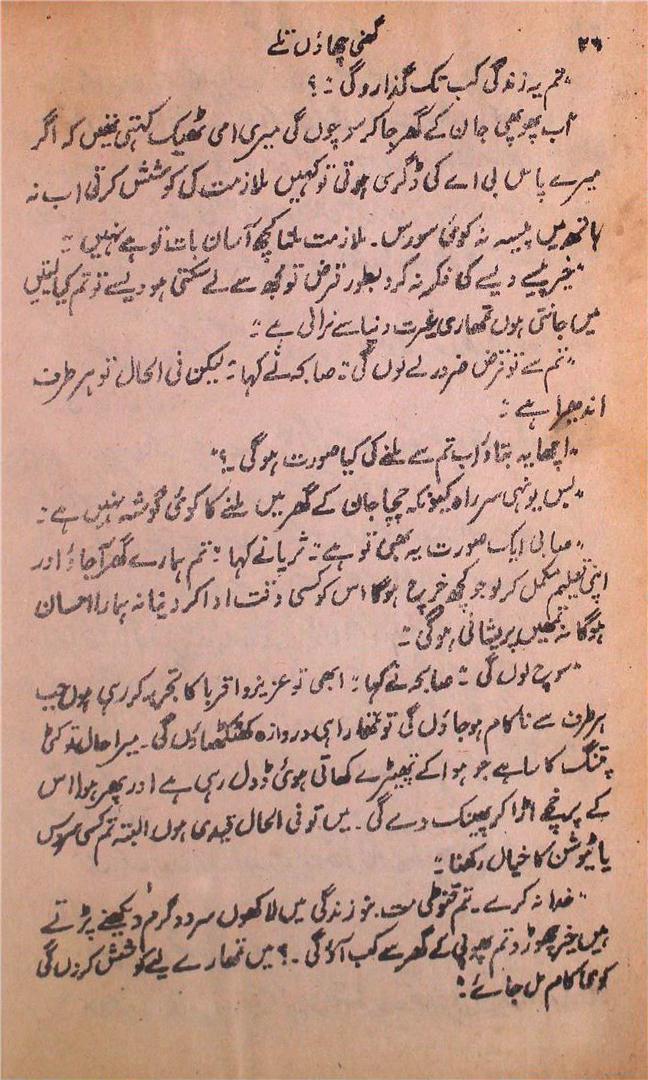 ۲۶
گھنی چھاؤں تلے
”تم یہ زندگی کب تک گذارو گی ۔؟
اب پھوپھی جان کے گھر جاکر سوچوں گی میری امی ٹھیک کہتی تھیں کہ اگر
میرے پاس بی اے کی ڈگری ہوتی تو کہیں ملازمت کی کوشش کرتی اب نہ
ہاتھ میں پیسہ نہ کوئی سورس۔ ملازمت ملنا کچھ آسان بات تو ہے نہیں ۔“
”خیر پیسے ویسے کی فکر نہ کرو بطور قرض تو مجھ سے لے سکتی ہو ویسے تو تم کیا لیتیں
میں جانتی ہوں تمھاری غیرت دنیا سے نرالی ہے ۔“
”تم سے تو قرض ضرور لے لوں گی ۔“ صابحہ نے کہا ۔” لیکن فی الحال تو ہر طرف
اندھیرا ہے ۔“
”اچھا یہ بتاؤ اب تم سے ملنے کی کیا صورت ہوگی ۔؟“
”بس یونہی سر راہ کیونکہ چچا جان کے گھر میں ملنے کا کوئی گوشہ نہیں ہے ۔
”صابی ایک صورت یہ بھی تو ہے ۔“ ثریا نے کہا ۔” تم ہمارے گھر آجاؤ اور
اپنی تعلیم مکمل کر لو جو کچھ خرچ ہوگا اس کو کسی وقت ادا کر دینا نہ ہمارا احسان
ہوگا نہ تمھیں پریشانی ہوگی ۔“
”سوچ لوں گی ۔“ صابحہ نے کہا ۔” ابھی تو عزیز و اقربا کا تجربہ کر رہی ہوں جب
ہر طرف سے ناکام ہو جاؤں گی تو تمھارا ہی دروازہ کھٹکھٹاؤں گی۔ میرا حال تو کٹی
پتنگ کا سا ہے جو ہوا کے تھپیڑے کھاتی ہوئی ڈول رہی ہے اور پھر ہوا اس
کے پرخچے اڑا کر پھینک دے گی۔ میں تو فی الحال قیدی ہوں البتہ تم کسی سروس
یا ٹیوشن کا خیال رکھنا ۔“
”خدا نہ کرے۔ تم قنوطی مت بنو زندگی میں لاکھوں سرد و گرم دیکھنے پڑتے
ہیں خیر چھوڑو تم پھوپی کے گھر سے کب آؤ گی ۔؟ میں تمھارے لیے کوشش کروں گی
کوئی کام مل جائے ۔“